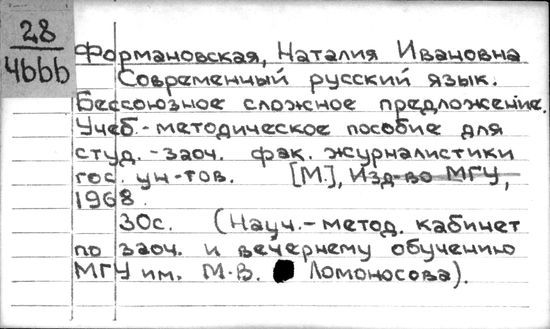 28
4bbb
Формановская, Наталия Ивановна
Современный русский язык.
Бессоюзное сложное предложение.
Учеб.-методическое пособие для
студ.-заоч. фак. журналистики
гос. ун-тов. [М.], Изд-во МГУ,
1968.
30с. (Науч.-метод. кабинет
по заоч. и вечернему обучению
МГУ им. М.В. Ломоносова).